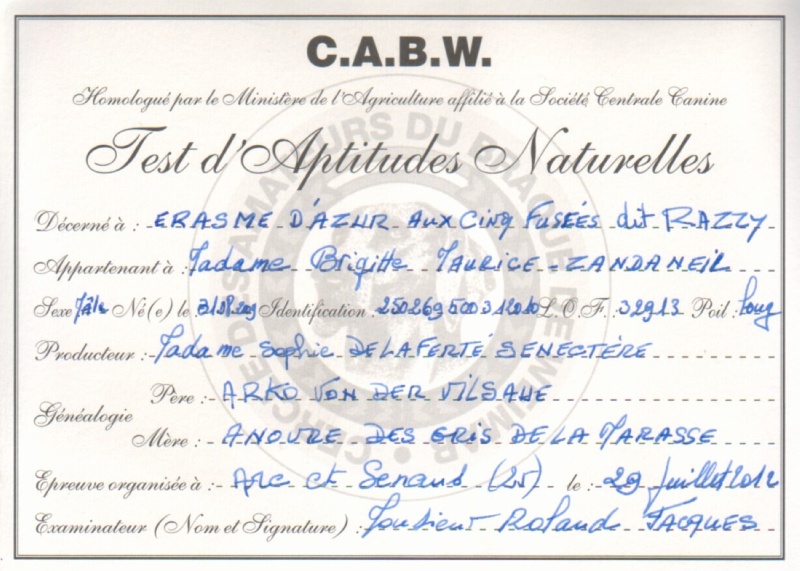 C.A.B.W.
Homologué par le Ministère de l'Agriculture affilié à la Société Centrale Canine
Test d'Aptitudes Naturelles
Décerné à : ERASME D'AZUR AUX CINQ FUSÉES dit RAZZY
Appartenant à : Madame Brigitte MAURICE-ZANDANEIL
Sexe Mâle Né(e) le Identification : L.O.F. : 32913 Poil : Long
Producteur : Madame Sophie DE LA FERTÉ SENECTÈRE
Généalogie
Père : ARKO VON DER VILSAUE
Mère : ANOURE DES GRIS DE LA MARASSE
Epreuve organisée à : ARC et Senans (25) le : 29 juillet 2012
Examinateur (Nom et Signature) : Monsieur Roland JACQUES
CERCLE DES AMATEURS DU BRAQUE DE WEIMAR